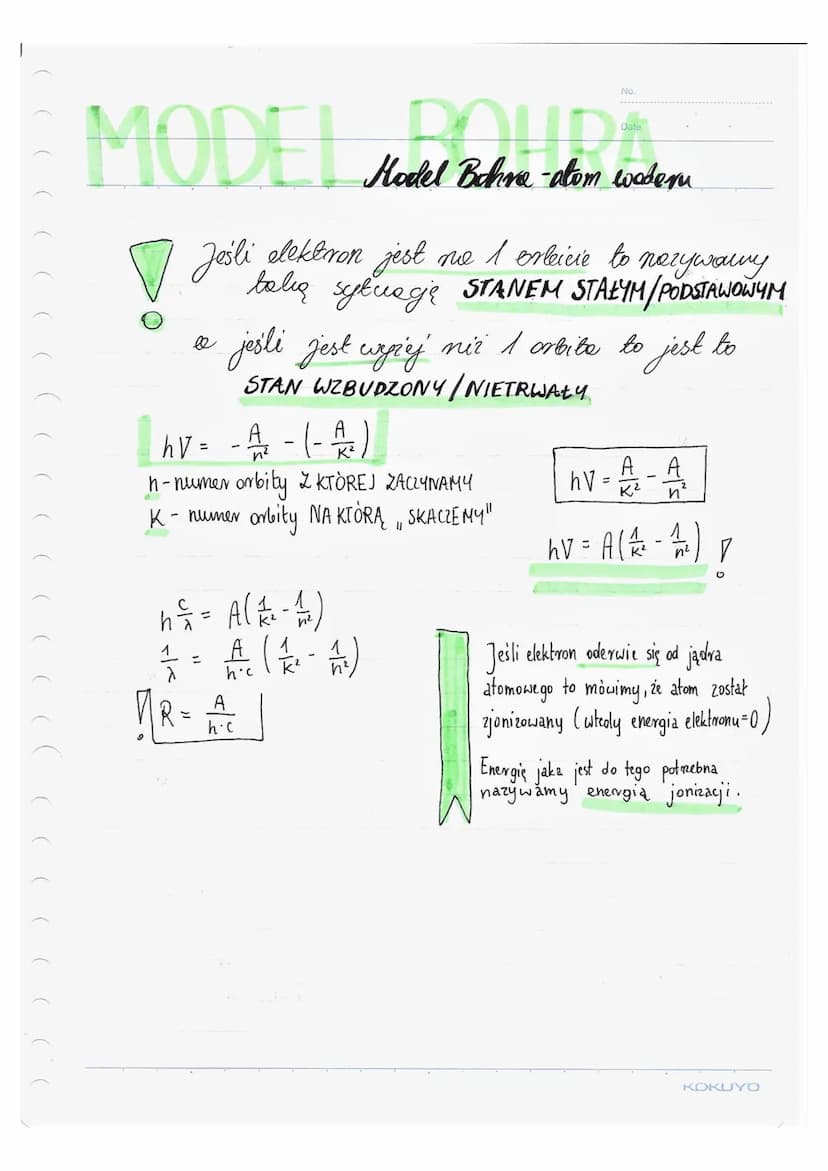 No.
MODEL BOHRA
Date
Model Bohra - atom wodoru
Jeśli elektron jest na 1 orbicie to nazywamy
taką sytuację STANEM STAŁYM/PODSTAWOWYM
a jeśli jest wyżej niż 1 orbita to jest to
STAN WZBUDZONY/NIETRWAŁY
hV = - A/n² - (- A/K²)
n - numer orbity Z KTÓREJ ZACZYNAMY
K - numer orbity NA KTÓRĄ „SKACZEMY"
hV = A/K² - A/n²
hV = A(1/K² - 1/n²) !
h c/λ = A(1/K² - 1/n²)
1/λ = A/h·c (1/K² - 1/n²)
! R = A/h·c
Jeśli elektron oderwie się od jądra
atomowego to mówimy, że atom został
zjonizowany (wtedy energia elektronu=0)
Energię jaka jest do tego potrzebna
nazywamy energią jonizacji.
KOKUYO